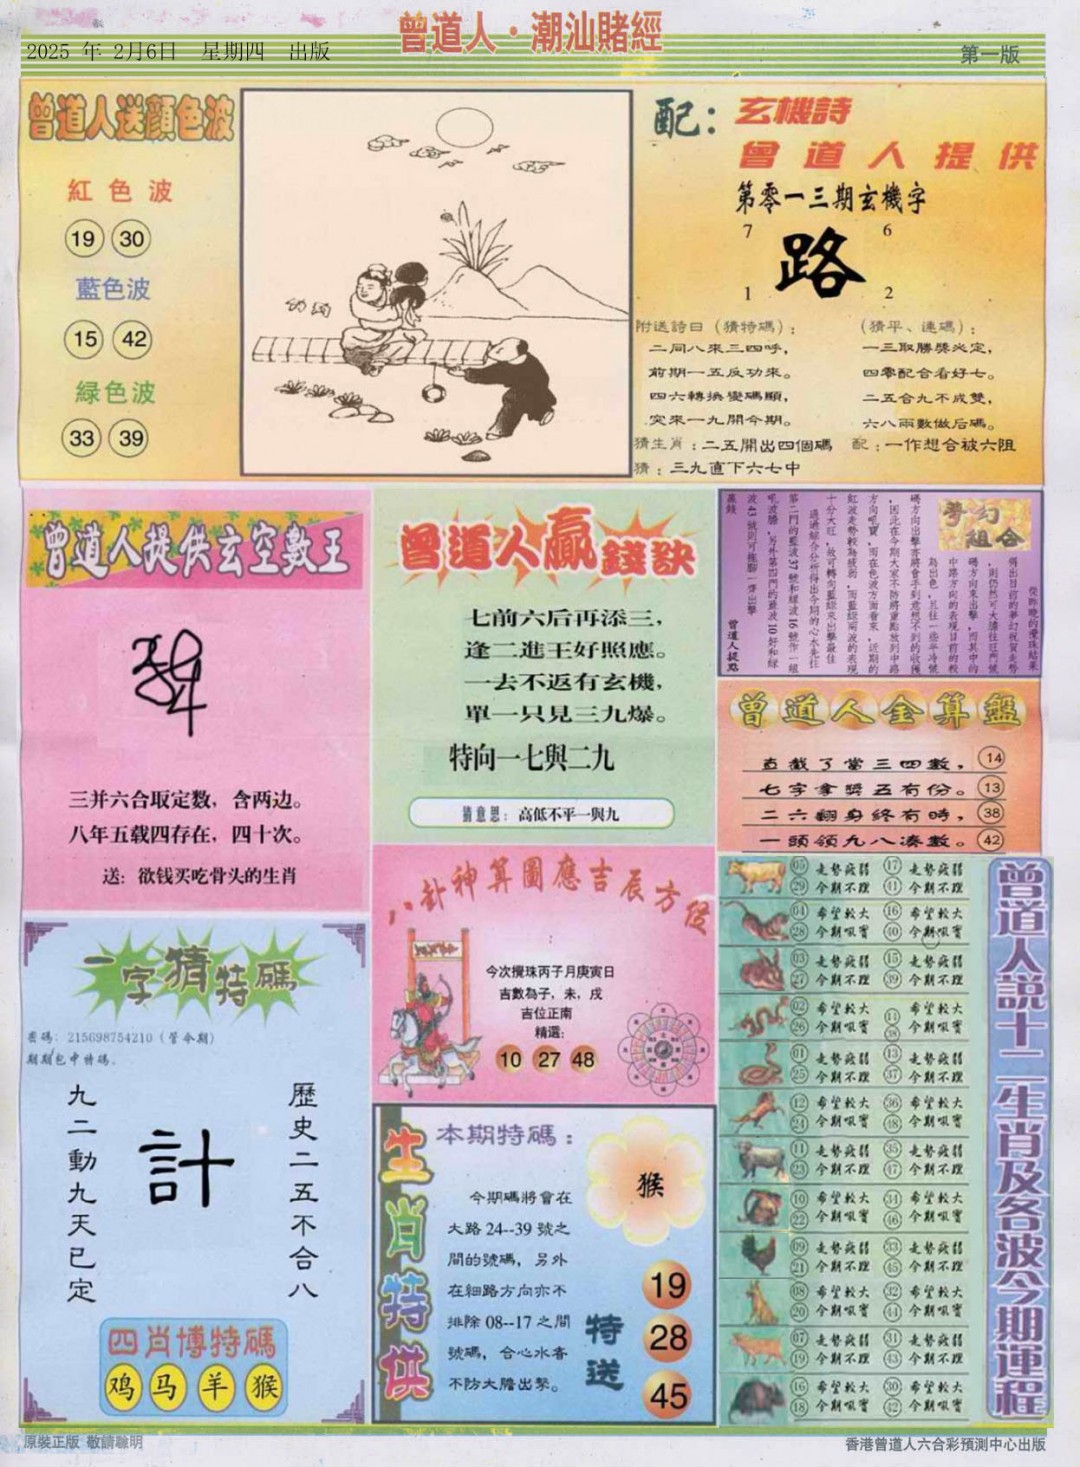 曾道人·潮汕賭經
2025 年 2月6日 星期四 出版
第一版
曾道人送顔色波
紅色波
19 30
藍色波
15 42
緑色波
33 39
配：玄機詩
曾道人提供
第零一三期玄機字
7 6
路
1 2
附送詩曰（猜特碼）：
二同八來三四呼，
前期一五反功來。
四六轉換變碼順，
突來一九開今期。
（猜平、連碼）：
一三取勝獎必定，
四零配合看好七。
二五合九不成雙，
六八兩數做后碼。
猜生肖：二五開出四個碼
配：一作想合被六阻
猜：三九直下六七中
曾道人提供玄空數王
三并六合取定数，含两边。
八年五载四存在，四十次。
送：欲钱买吃骨头的生肖
曾道人贏錢訣
七前六后再添三，
逢二進王好照應。
一去不返有玄機，
單一只見三九爆。
特向一七與二九
猜意思：高低不平一與九
夢幻組合
曾道人提點
曾道人金算盤
直截了當三四數，14
七字拿獎五有份。13
二六翻身終有時，38
一頭領九八湊數。42
一字猜特碼
密碼：215698754210（管今期）
期期包中特碼。
九二動九天已定
計
歷史二五不合八
四肖博特碼
鸡 马 羊 猴
八卦神算圖應吉辰方位
今次攪珠丙子月庚寅日
吉數為子，未，戌
吉位正南
精選：
10 27 48
生肖特供
本期特碼：
猴
今期碼將會在
大路24--39號之
間的號碼，另外
在細路方向亦不
排除08--17之間
號碼，合心水者
不防大膽出擊。
特送
19
28
45
曾道人説十二生肖及各波今期運程
05 29 走勢疲弱 今期不理 17 41 走勢疲弱 今期不理
04 28 希望較大 今期吼實 16 40 希望較大 今期吼實
03 27 走勢疲弱 今期不理 15 39 走勢疲弱 今期不理
02 26 希望較大 今期吼實 14 38 希望較大 今期吼實
01 25 走勢疲弱 今期不理 13 37 走勢疲弱 今期不理
12 24 希望較大 今期吼實 36 48 希望較大 今期吼實
11 23 走勢疲弱 今期不理 35 47 走勢疲弱 今期不理
10 22 希望較大 今期吼實 34 46 希望較大 今期吼實
09 21 走勢疲弱 今期不理 33 45 走勢疲弱 今期不理
08 20 希望較大 今期吼實 32 44 希望較大 今期吼實
07 19 走勢疲弱 今期不理 31 43 走勢疲弱 今期不理
16 18 希望較大 今期吼實 30 42 希望較大 今期吼實
原裝正版 敬請聰明
香港曾道人六合彩預測中心出版